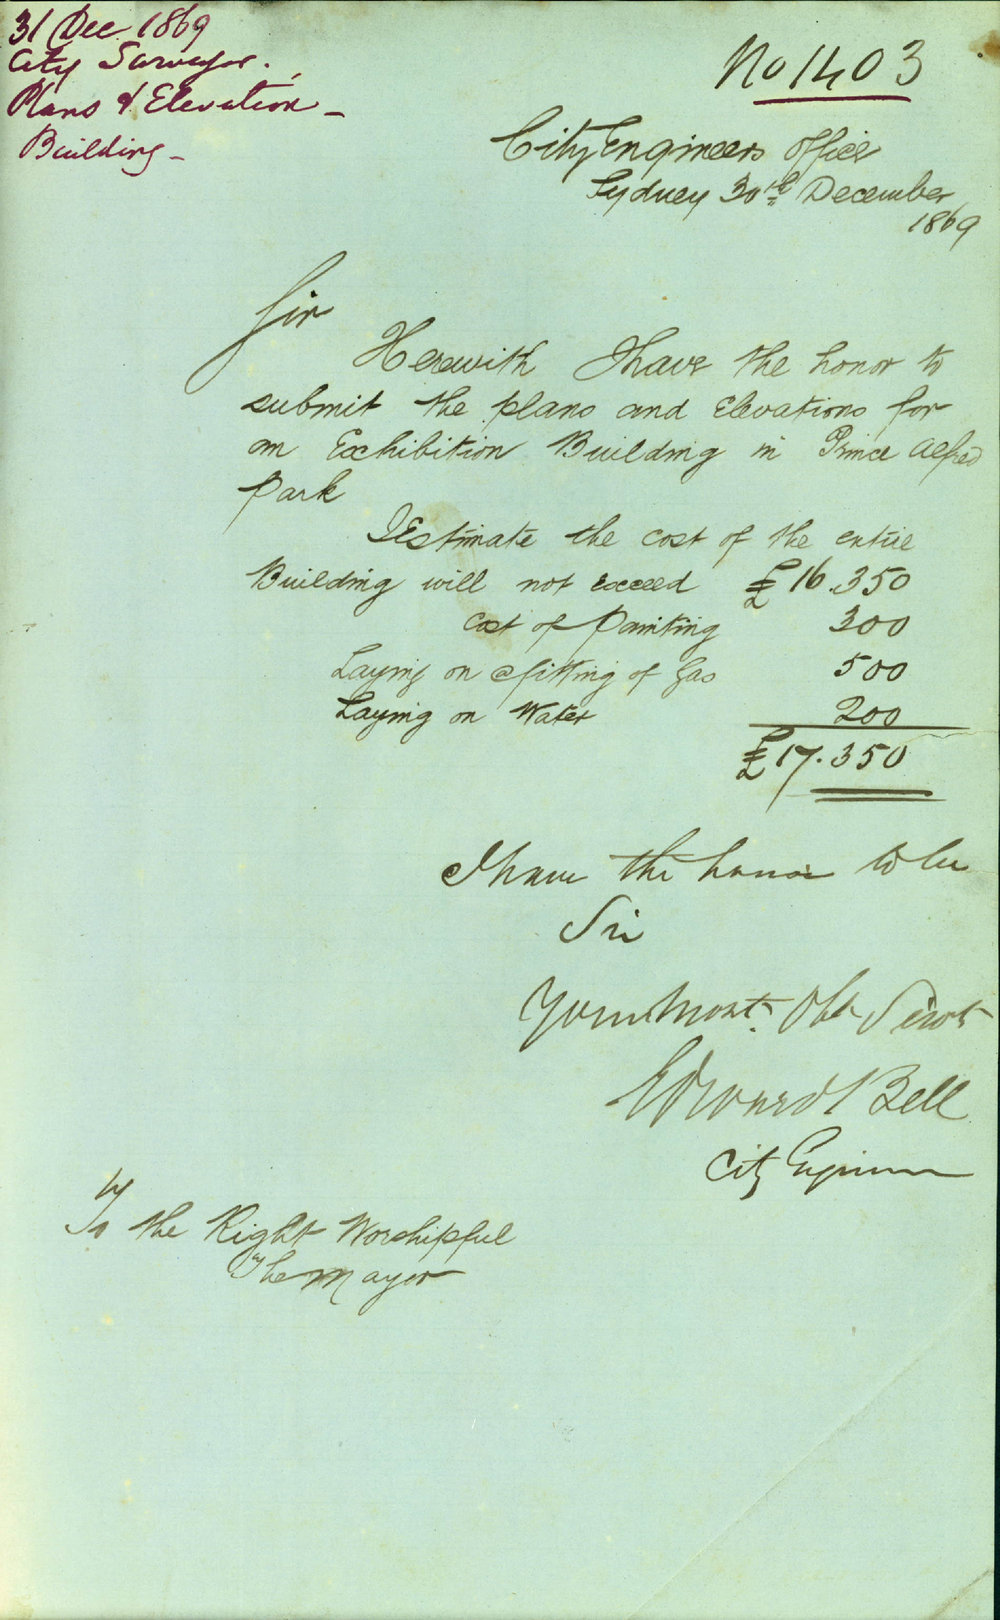 31 Dec 1869
City Surveyor.
Plans & Elevation
Building
No 1403
City Engineers Office
Sydney 30th December
1869
Sir
Herewith I have the honor to
submit the plans and Elevations for
an Exhibition Building in Prince Alfred
Park
I Estimate the cost of the entire
Building will not exceed £16.350
Cost of Painting 300
Laying on & fitting of Gas 500
Laying on Water 200
£17.350
I have the honor to be
Sir
Your most Obt Servt
Edward Bell
City Engineer
To the Right Worshipful
The Mayor